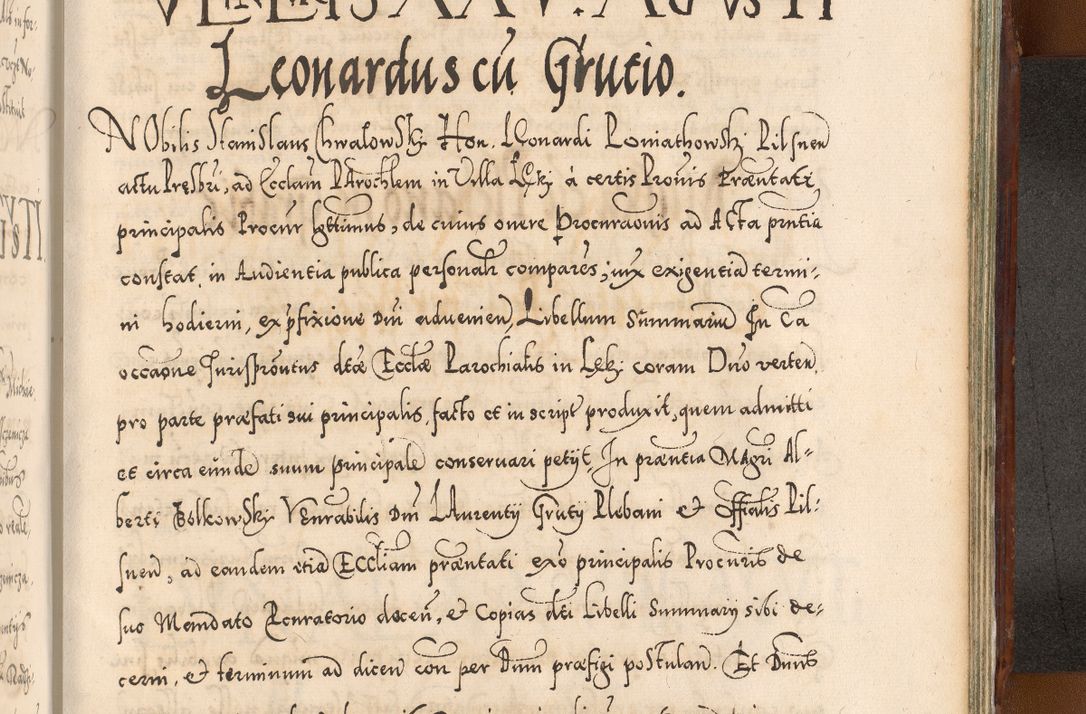 VENERIS XXV. AUGUSTI
Leonardus cũ Grutio.
NObilis Stanislaus Chwalowski Hon. LEonardi Poniathowski Pilsnen
actu Pręsbri, ad Ecclam PArochlem in Villa Lęki à certis Prouis Præntati
principalis Procur lgttimus, de cuius onere Procuraonis ad Acta prntia
constat, in Audientia publica personalr compares, iux exigentia termi-
ni hodierni, ex pfixione Dni aduenien, Libellum Summariu In Ca
occaone Jurispröutus dtæ Ecclæ Parochialis in Lęki coram Dno verten
pro parte præfati sui principalis, facto et in script produxit, quem admitti
et circa eunde suum principale conseruari petijt. In præntia Magri Al-
berti Bolkowski VEnrabilis Dni LAurentij Grutij Plebani et Offialis Pil-
snen, ad eandem etia ECCliam præntati exo principalis Procuris de
suo Mandato Pcuratorio docen, et Copias dti Libelli Summarij sibi de-
cerni, et terminum ad dicen con per Dnum præfigi postulan. Et Dnus